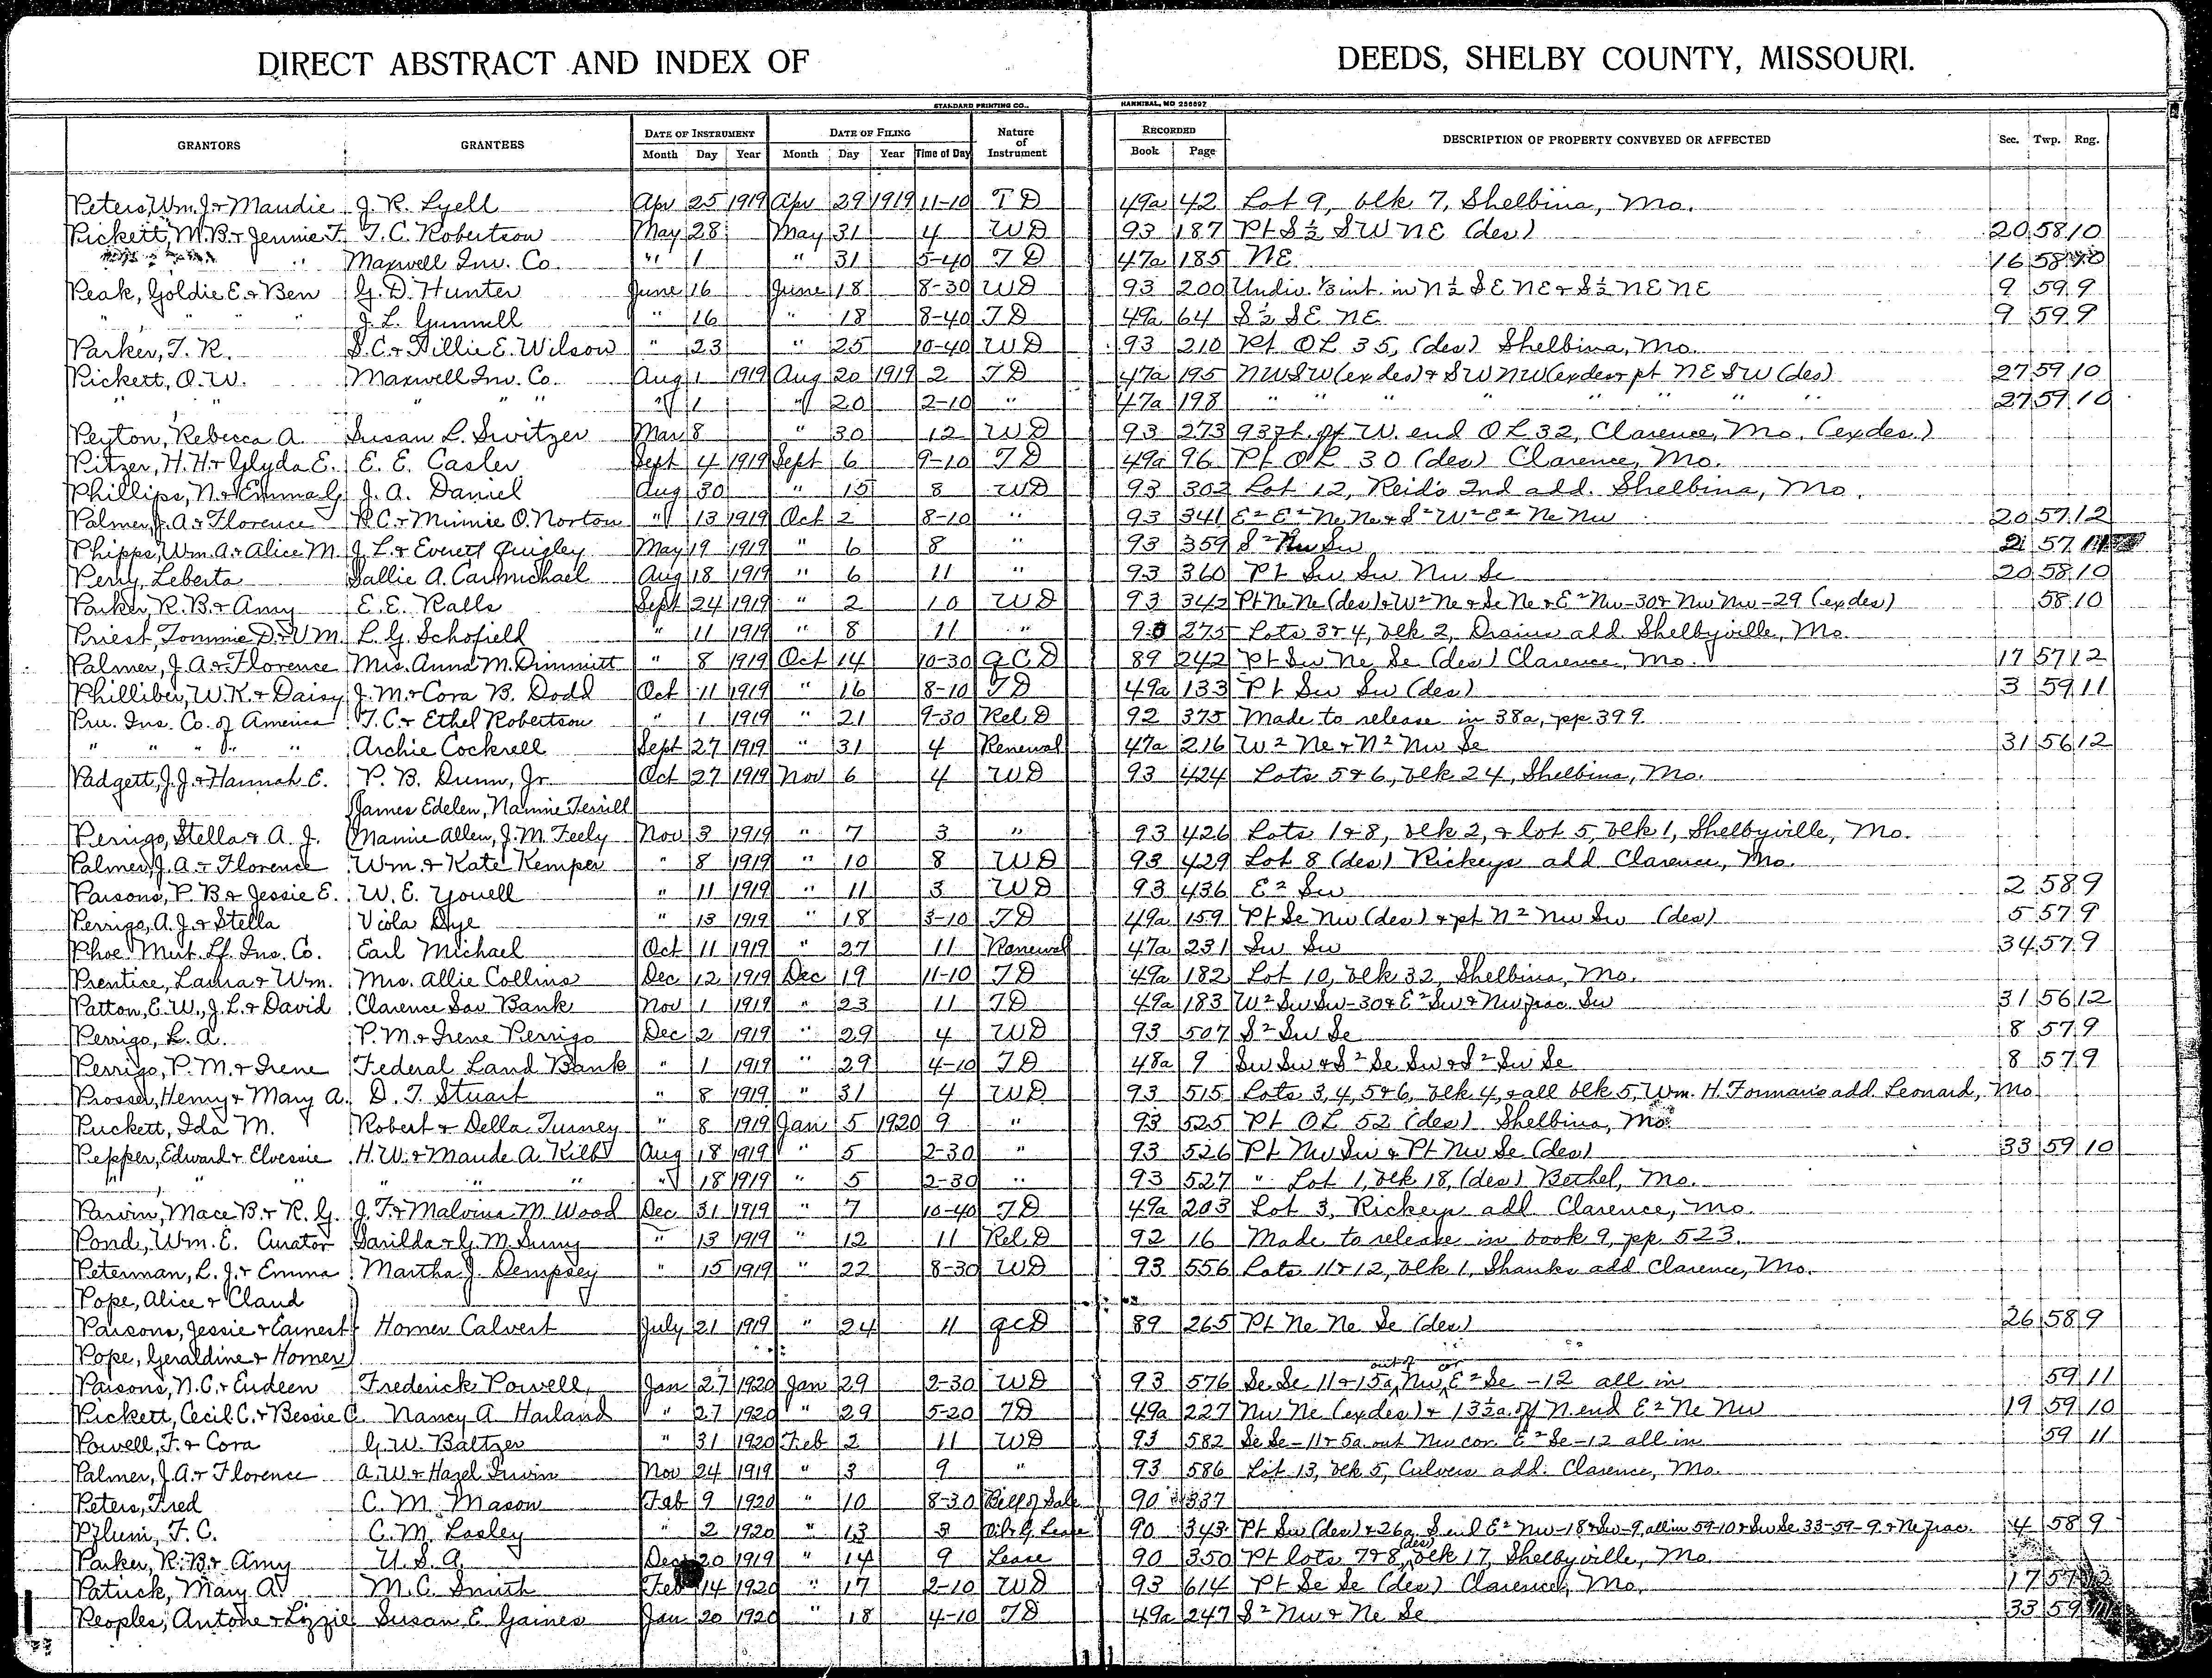 DIRECT ABSTRACT AND INDEX OF DEEDS, SHELBY COUNTY, MISSOURI.
STANDARD PRINTING CO., HANNIBAL, MO 256697
GRANTORS GRANTEES DATE OF INSTRUMENT DATE OF FILING Nature of Instrument RECORDED DESCRIPTION OF PROPERTY CONVEYED OR AFFECTED Sec. Twp. Rng.
Month Day Year Month Day Year Time of Day Book Page
Peters, Wm. J. & Maudie J. R. Lyell Apr 25 1919 Apr 29 1919 11-10 T D 49a 42 Lot 9, blk 7, Shelbina, Mo.
Pickett, M.B. & Jennie F. T. C. Robertson May 28 May 31 4 WD 93 187 Pt S½ SW NE (des) 20 58 10
" Maxwell Inv. Co. " 1 " 31 5-40 T D 47a 185 NE 16 58 10
Peak, Goldie E. & Ben G. D. Hunter June 16 June 18 8-30 WD 93 200 Undiv. ⅓ int. in N½ SE NE & S½ NE NE 9 59 9
" " " J. L. Gunnell " 16 " 18 8-40 T D 49a 64 S½ SE NE 9 59 9
Parker, T. R. S. C. & Dillie E. Wilson " 23 " 25 10-40 WD 93 210 Pt OL 35, (des) Shelbina, Mo.
Pickett, O. W. Maxwell Inv. Co. Aug 1 1919 Aug 20 1919 2 T D 47a 195 NWSW (exdes) & SWNW (exdes & pt NESW (des) 27 59 10
" " " " " " 1 " 20 2-10 " 47a 198 " " " " " " " 27 59 10
Peyton, Rebecca A. Susan L. Switzer Mar 8 " 30 12 WD 93 273 93 ft. of W. end OL 32, Clarence, Mo. (exdes.)
Pitzer, H. H. & Glyda E. E. E. Casler Sept 4 1919 Sept 6 9-10 T D 49a 96 Pt OL 30 (des) Clarence, Mo.
Phillips, N. & Emma G. J. A. Daniel Aug 30 " 15 8 WD 93 302 Lot 12, Reid's 2nd add. Shelbina, Mo.
Palmer, J. A. & Florence R. C. & Minnie O. Norton " 13 1919 Oct 2 8-10 " 93 341 E² E² Ne Ne & S² W² E² Ne Nw 20 57 12
Phipps, Wm. A. & Alice M. J. L. & Everett Quigley May 19 1919 " 6 8 " 93 359 S² Nw Sw 21 57 11
Perry, Leberta Sallie A. Carmichael Aug 18 1919 " 6 11 " 93 360 Pt Sw Sw Nw Se 20 58 10
Parker, R. B. & Amy E. E. Ralls Sept 24 1919 " 2 10 WD 93 342 Pt Ne Ne (des) & W² Ne & Se Ne & E² Nw-30 & Nw Nw-29 (exdes) 58 10
Priest, Tommie D. & V M. L. G. Schofield " 11 1919 " 8 11 " 90 275 Lots 3 & 4, blk 2, Drains add. Shelbyville, Mo.
Palmer, J. A. & Florence Mrs. Anna M. Dimmitt " 8 1919 Oct 14 10-30 QCD 89 242 Pt Sw Ne Se (des) Clarence, Mo. 17 57 12
Philliber, W. K. & Daisy J. M. & Cora B. Dodd Oct 11 1919 " 16 8-10 T D 49a 133 Pt Sw Sw (des) 3 59 11
Pru. Ins. Co. of America T. C. & Ethel Robertson " 1 1919 " 21 9-30 Rel. D 92 375 Made to release in 38a, pp. 399
" " " " " Archie Cockrell Sept 27 1919 " 31 4 Renewal 47a 216 W² Ne & N² Nw Se 31 56 12
Padgett, J. J. & Hannah E. P. B. Dunn, Jr. Oct 27 1919 Nov 6 4 WD 93 424 Lots 5 & 6, blk 24, Shelbina, Mo.
James Edelen, Nannie Terrill
Perrigo, Stella & A. J. Mamie Allen, J. M. Feely Nov 3 1919 " 7 3 " 93 426 Lots 1 & 8, blk 2, & lot 5, blk 1, Shelbyville, Mo.
Palmer, J. A. & Florence Wm. & Kate Kemper " 8 1919 " 10 8 WD 93 429 Lot 8 (des) Rickeys add Clarence, Mo.
Parsons, P. B. & Jessie E. W. E. Youell " 11 1919 " 11 3 WD 93 436 E² Sw 2 58 9
Perrigo, A. J. & Stella Viola Dye " 13 1919 " 18 3-10 T D 49a 159 Pt Se Nw (des) & pt N² Nw Sw (des) 5 57 9
Phoe. Mut. Lf. Ins. Co. Earl Michael Oct 11 1919 " 27 11 Renewal 47a 231 Sw Sw 34 57 9
Prentice, Laura & Wm. Mrs. Allie Collins Dec 12 1919 Dec 19 11-10 T D 49a 182 Lot 10, blk 32, Shelbina, Mo.
Patton, E. W., J. L. & David Clarence Sav Bank Nov 1 1919 " 23 11 T D 49a 183 W² Sw Sw-30 & E² Sw & Nw frac. Sw 31 56 12
Perrigo, L. A. P. M. & Irene Perrigo Dec 2 1919 " 29 4 WD 93 507 S² Sw Se 8 57 9
Perrigo, P. M. & Irene Federal Land Bank " 1 1919 " 29 4-10 T D 48a 9 Sw Sw & S² Se Sw & S² Sw Se 8 57 9
Prosser, Henry & Mary A. D. T. Stuart " 8 1919 " 31 4 WD 93 515 Lots 3, 4, 5 & 6, blk 4, & all blk 5, Wm. H. Forman's add Leonard, Mo.
Puckett, Ida M. Robert & Della Turney " 8 1919 Jan 5 1920 9 " 93 525 Pt OL 52 (des) Shelbina, Mo.
Pepper, Edward & Elvessie H. W. & Maude A. Kilby Aug 18 1919 " 5 2-30 " 93 526 Pt Nw Sw & Pt Nw Se (des) 33 59 10
" " " " " " " 18 1919 " 5 2-30 " 93 527 " Lot 1, blk 18, (des) Bethel, Mo.
Parvin, Mace B. & R. G. J. F. & Malvina M. Wood Dec 31 1919 " 7 10-40 T D 49a 203 Lot 3, Rickeys add Clarence, Mo.
Pond, Wm. E. Curator Sarilda & G. M. " 13 1919 " 12 11 Rel. D 92 16 Made to release in book 9, pp. 523.
Peterman, L. J. & Emma Martha J. Dempsey " 15 1919 " 22 8-30 WD 93 556 Lots 11 & 12, blk 1, Shanks add Clarence, Mo.
Pope, Alice & Claud
Parsons, Jessie & Earnest Homer Calvert July 21 1919 " 24 11 QCD 89 265 Pt Ne Ne Se (des) 26 58 9
Pope, Geraldine & Homer
Parsons, N. C. & Eudeen Frederick Powell Jan 27 1920 Jan 29 2-30 WD 93 576 Se Se 11 & 15a out of Nw cor E² Se -12 all in 59 11
Pickett, Cecil C. & Bessie C. Nancy A Harland " 27 1920 " 29 5-20 T D 49a 227 Nw Ne (exdes) & 13½a. of N. end E² Ne Nw 19 59 10
Powell, F. & Cora G. W. Baltzer " 31 1920 Feb 2 11 WD 93 582 Se Se-11 & 5a out Nw cor. E² Se-12 all in 59 11
Palmer, J. A. & Florence A. W. & Hazel Irwin Nov 24 1919 " 3 9 " 93 586 Lot 13, blk 5, Culvers add. Clarence, Mo.
Peters, Fred C. M. Mason Feb 9 1920 " 10 8-30 Bill of Sale 90 337
F. C. C. M. Lasley " 2 1920 " 13 3 Oil & G. Lease 90 343 Pt Sw (des) & 26a S end E² Nw-18 & Sw-9, all in 59-10 & Sw Se 33-59-9 & Ne frac. 4 58 9
Parker, R. B. & Amy U. S. A. Dec 20 1919 " 14 9 Lease 90 350 Pt lots 7 & 8, (des) blk 17, Shelbyville, Mo.
Patrick, Mary A. M. C. Smith Feb 14 1920 " 17 2-10 WD 93 614 Pt Se Se (des) Clarence, Mo. 17 57
Peoples, Antone & Lizzie Susan E. Gaines Jan 20 1920 " 18 4-10 T D 49a 247 S² Nw & Ne Se 33 59